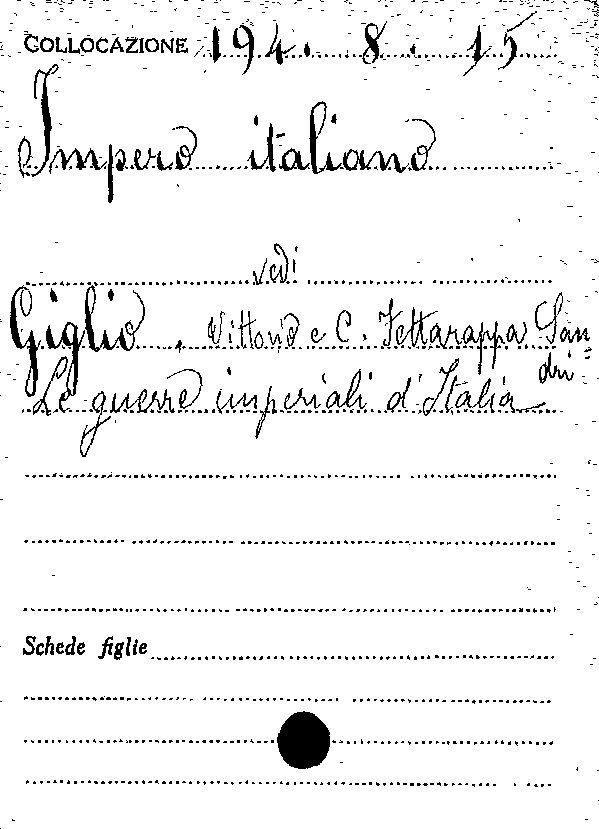 COLLOCAZIONE 194. 8. 15
Impero italiano
vedi
Giglio, Vittorio e C. Fettarappa San=
dri
Le guerre imperiali d'Italia
Schede figlie